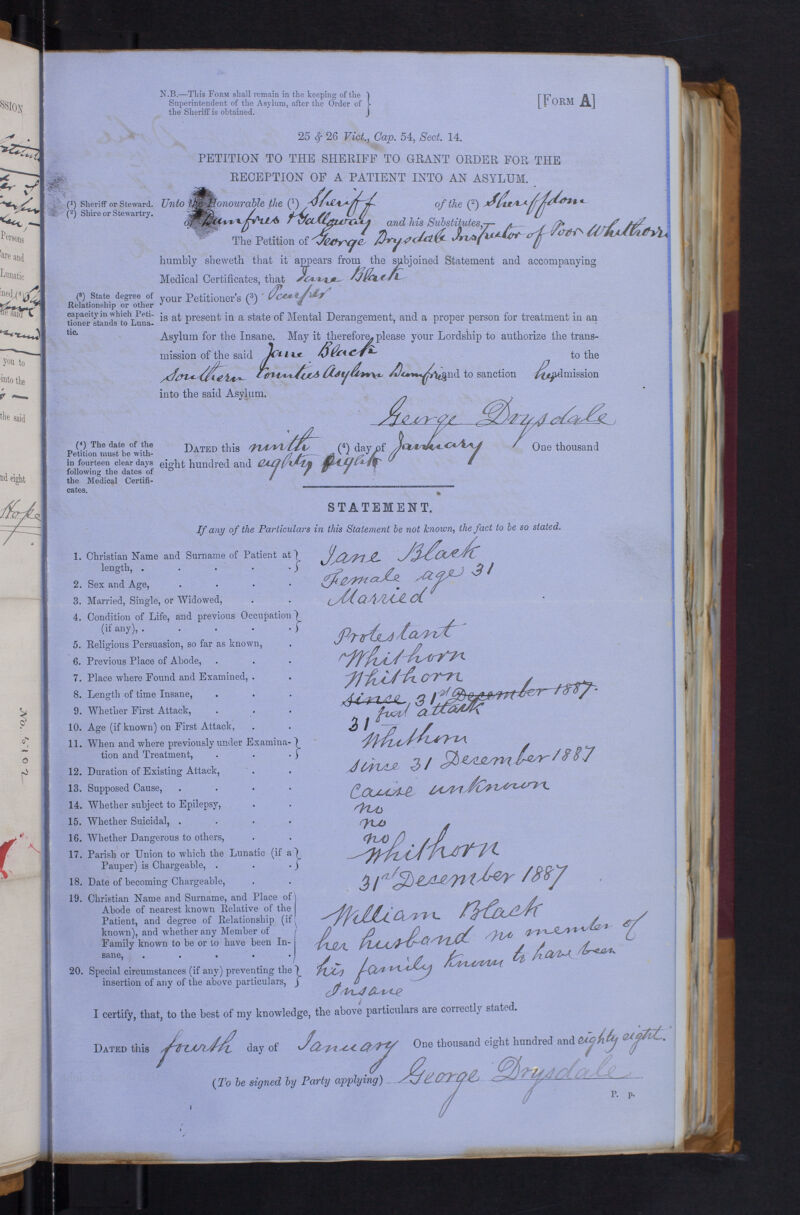 N.B.—This Form shall remain in the keeping of the
Superintendent of the Asylum, after the Order of
the Sheriff is obtained.
[Form A]
25 & 26 Vict., Cap. 54, Sect. 14.
PETITION TO THE SHERIFF TO GRANT ORDER FOR THE
RECEPTION OF A PATIENT INTO AN ASYLUM.
(1) Sheriff or Steward.
(2) Shire or Stewartry.
Unto the Honourable the (1) Sheriff of the (2) Sheriffdom
of Dumfries & Galloway and his Substitutes,—
The Petition of George Drysdale Inspector of Poor Whithorn
humbly sheweth that it appears from the subjoined Statement and accompanying
Medical Certificates, that Jane Black
(3) State degree of
Relationship or other
capacity in which Peti-
tioner stands to Luna-
tic.
your Petitioner's (3) Pauper
is at present in a state of Mental Derangement, and a proper person for treatment in an
Asylum for the Insane. May it therefore please your Lordship to authorize the trans-
mission of the said Jane Black to the
Southern Counties Asylum Dumfries and to sanction her admission
into the said Asylum.
George Drysdale
(4) The date of the
Petition must be with-
in fourteen clear days
following the dates of
the Medical Certifi-
cates.
Dated this ninth (4) day of January One thousand
eight hundred and eighty eight
STATEMENT.
If any of the Particulars in this Statement be not known, the fact to be so stated.
1. Christian Name and Surname of Patient at
length, . . . . . Jane Black
2. Sex and Age, . . . . Female age 31
3. Married, Single, or Widowed, . . Married
4. Condition of Life, and previous Occupation
(if any), . . . . .
5. Religious Persuasion, so far as known, . Protestant
6. Previous Place of Abode, . . . Whithorn
7. Place where Found and Examined, . . Whithorn
8. Length of time Insane, . . . since 31st December 1887.
9. Whether First Attack, . . . first attack
10. Age (if known) on First Attack, . . 31
11. When and where previously under Examina-
tion and Treatment, . . . Whithorn
12. Duration of Existing Attack, . . since 31 December 1887
13. Supposed Cause, . . . . cause unknown
14. Whether subject to Epilepsy, . . no
15. Whether Suicidal, . . . . no
16. Whether Dangerous to others, . . no
17. Parish or Union to which the Lunatic (if a
Pauper) is Chargeable, . . . Whithorn
18. Date of becoming Chargeable, . . 31st December 1887
19. Christian Name and Surname, and Place of
Abode of nearest known Relative of the
Patient, and degree of Relationship (if
known), and whether any Member of
Family known to be or to have been In-
sane, . . . . .
William Black
her husband no member of
his family known to have been
Insane
20. Special circumstances (if any) preventing the
insertion of any of the above particulars,
I certify, that, to the best of my knowledge, the above particulars are correctly stated.
Dated this fourth day of January One thousand eight hundred and eighty eight.
(To be signed by Party applying) George Drysdale
P. p.
SSION
Persons
are and
Lunatic
you to
into the
the said
nd eight
Hope